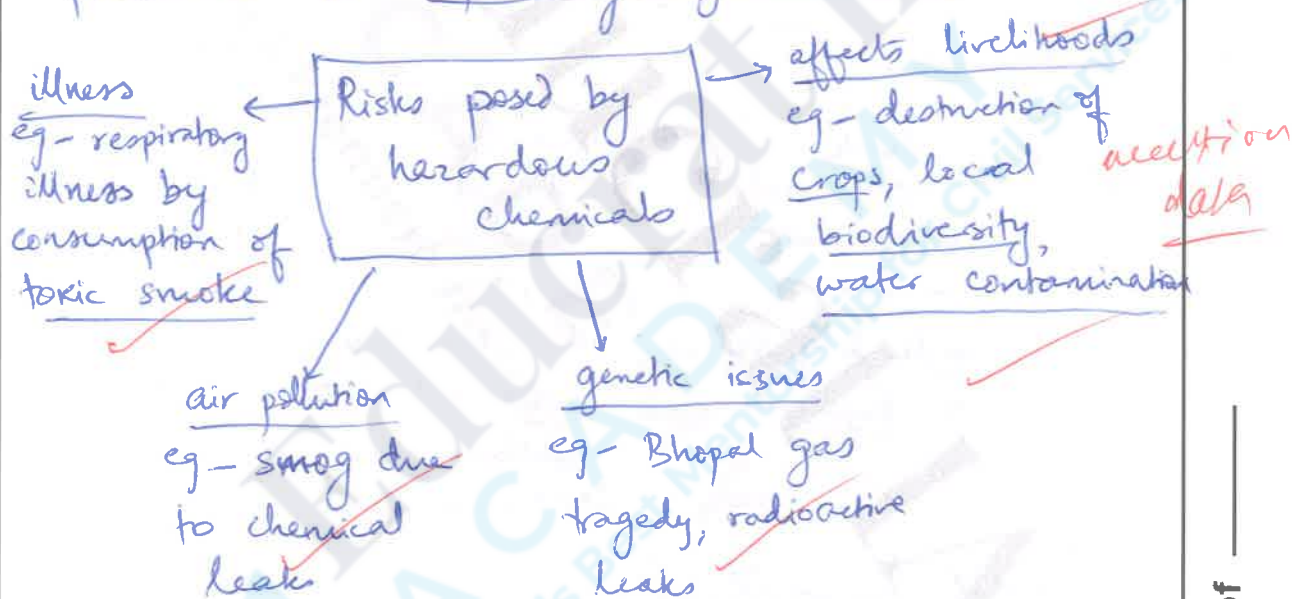 Risks posed by
hazardous
chemicals
illness
eg - respiratory
illness by
consumption of
toxic smoke
affects livelihoods
eg - destruction of
crops, local
biodiversity,
water contamination
data
air pollution
eg - smog due
to chemical
leaks
genetic issues
eg - Bhopal gas
tragedy, radioactive
leaks
Educrat
ACADEMY
of